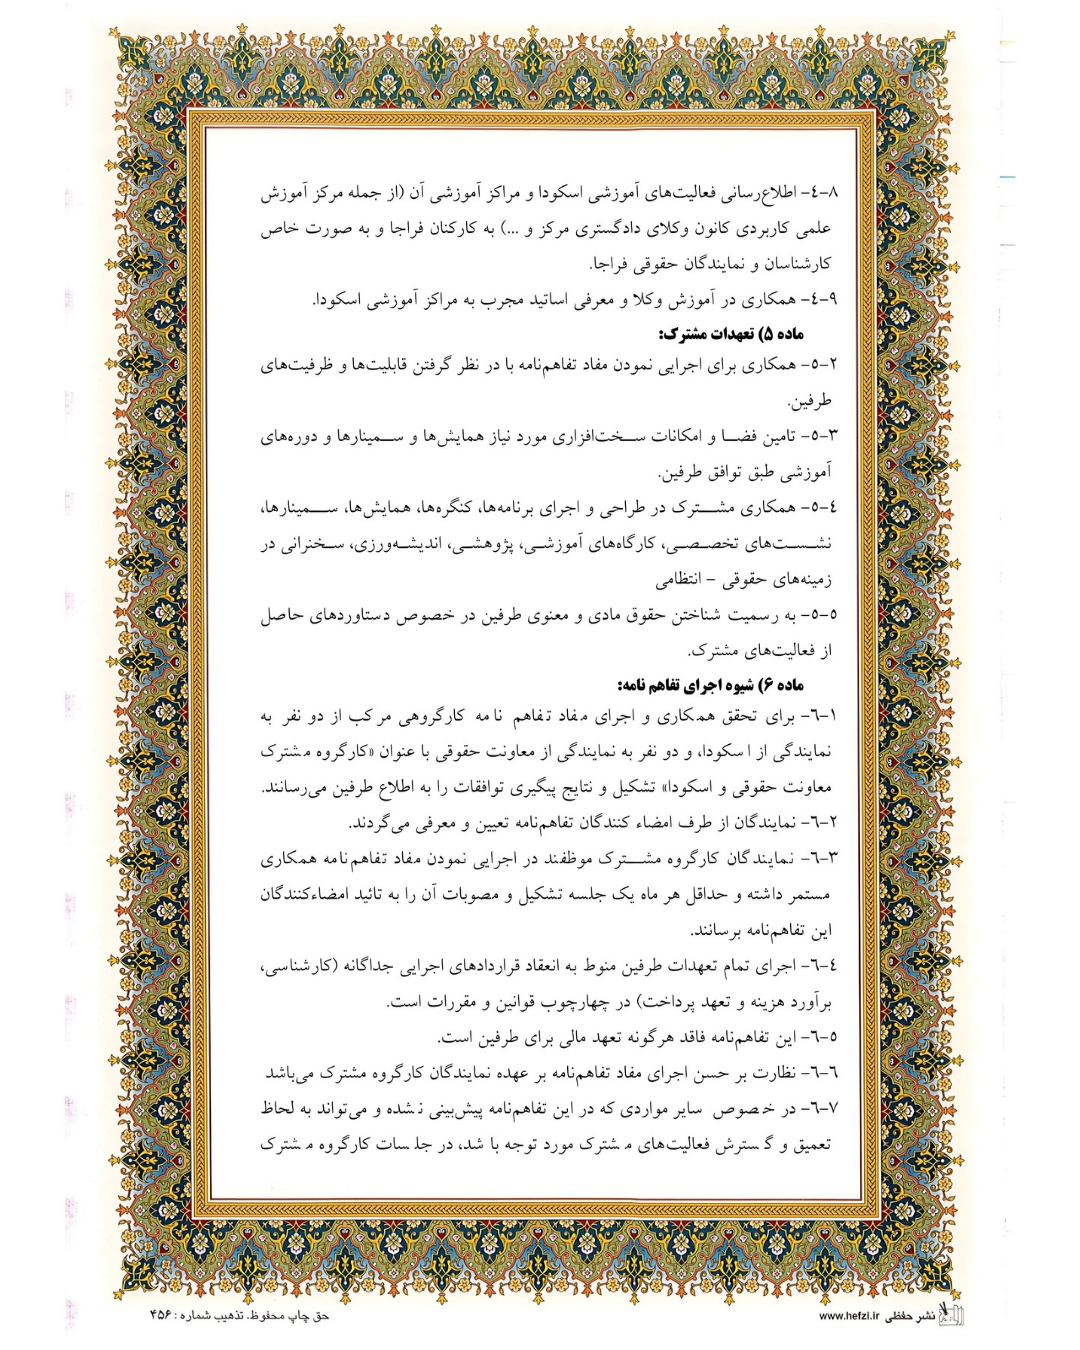 ۴-۸- اطلاع‌رسانی فعالیت‌های آموزشی اسکودا و مراکز آموزشی آن (از جمله مرکز آموزش
علمی کاربردی کانون وکلای دادگستری مرکز و ...) به کارکنان فراجا و به صورت خاص
کارشناسان و نمایندگان حقوقی فراجا.
۴-۹- همکاری در آموزش وکلا و معرفی اساتید مجرب به مراکز آموزشی اسکودا.
ماده ۵) تعهدات مشترک:
۵-۲- همکاری برای اجرایی نمودن مفاد تفاهم‌نامه با در نظر گرفتن قابلیت‌ها و ظرفیت‌های
طرفین.
۵-۳- تامین فضا و امکانات سخت‌افزاری مورد نیاز همایش‌ها و سمینارها و دوره‌های
آموزشی طبق توافق طرفین.
۵-۴- همکاری مشترک در طراحی و اجرای برنامه‌ها، کنگره‌ها، همایش‌ها، سمینارها،
نشست‌های تخصصی، کارگاه‌های آموزشی، پژوهشی، اندیشه‌ورزی، سخنرانی در
زمینه‌های حقوقی – انتظامی
۵-۵- به رسمیت شناختن حقوق مادی و معنوی طرفین در خصوص دستاوردهای حاصل
از فعالیت‌های مشترک.
ماده ۶) شیوه اجرای تفاهم نامه:
۶-۱- برای تحقق همکاری و اجرای مفاد تفاهم نامه کارگروهی مرکب از دو نفر به
نمایندگی از اسکودا، و دو نفر به نمایندگی از معاونت حقوقی با عنوان «کارگروه مشترک
معاونت حقوقی و اسکودا» تشکیل و نتایج پیگیری توافقات را به اطلاع طرفین می‌رسانند.
۶-۲- نمایندگان از طرف امضاء کنندگان تفاهم‌نامه تعیین و معرفی می‌گردند.
۶-۳- نمایندگان کارگروه مشترک موظفند در اجرایی نمودن مفاد تفاهم‌نامه همکاری
مستمر داشته و حداقل هر ماه یک جلسه تشکیل و مصوبات آن را به تائید امضاءکنندگان
این تفاهم‌نامه برسانند.
۶-۴- اجرای تمام تعهدات طرفین منوط به انعقاد قراردادهای اجرایی جداگانه (کارشناسی،
برآورد هزینه و تعهد پرداخت) در چهارچوب قوانین و مقررات است.
۶-۵- این تفاهم‌نامه فاقد هرگونه تعهد مالی برای طرفین است.
۶-۶- نظارت بر حسن اجرای مفاد تفاهم‌نامه بر عهده نمایندگان کارگروه مشترک می‌باشد
۶-۷- در خصوص سایر مواردی که در این تفاهم‌نامه پیش‌بینی نشده و می‌تواند به لحاظ
تعمیق و گسترش فعالیت‌های مشترک مورد توجه باشد، در جلسات کارگروه مشترک
نشر حفظی www.hefzi.ir
حق چاپ محفوظ. تذهیب شماره : ۴۵۶